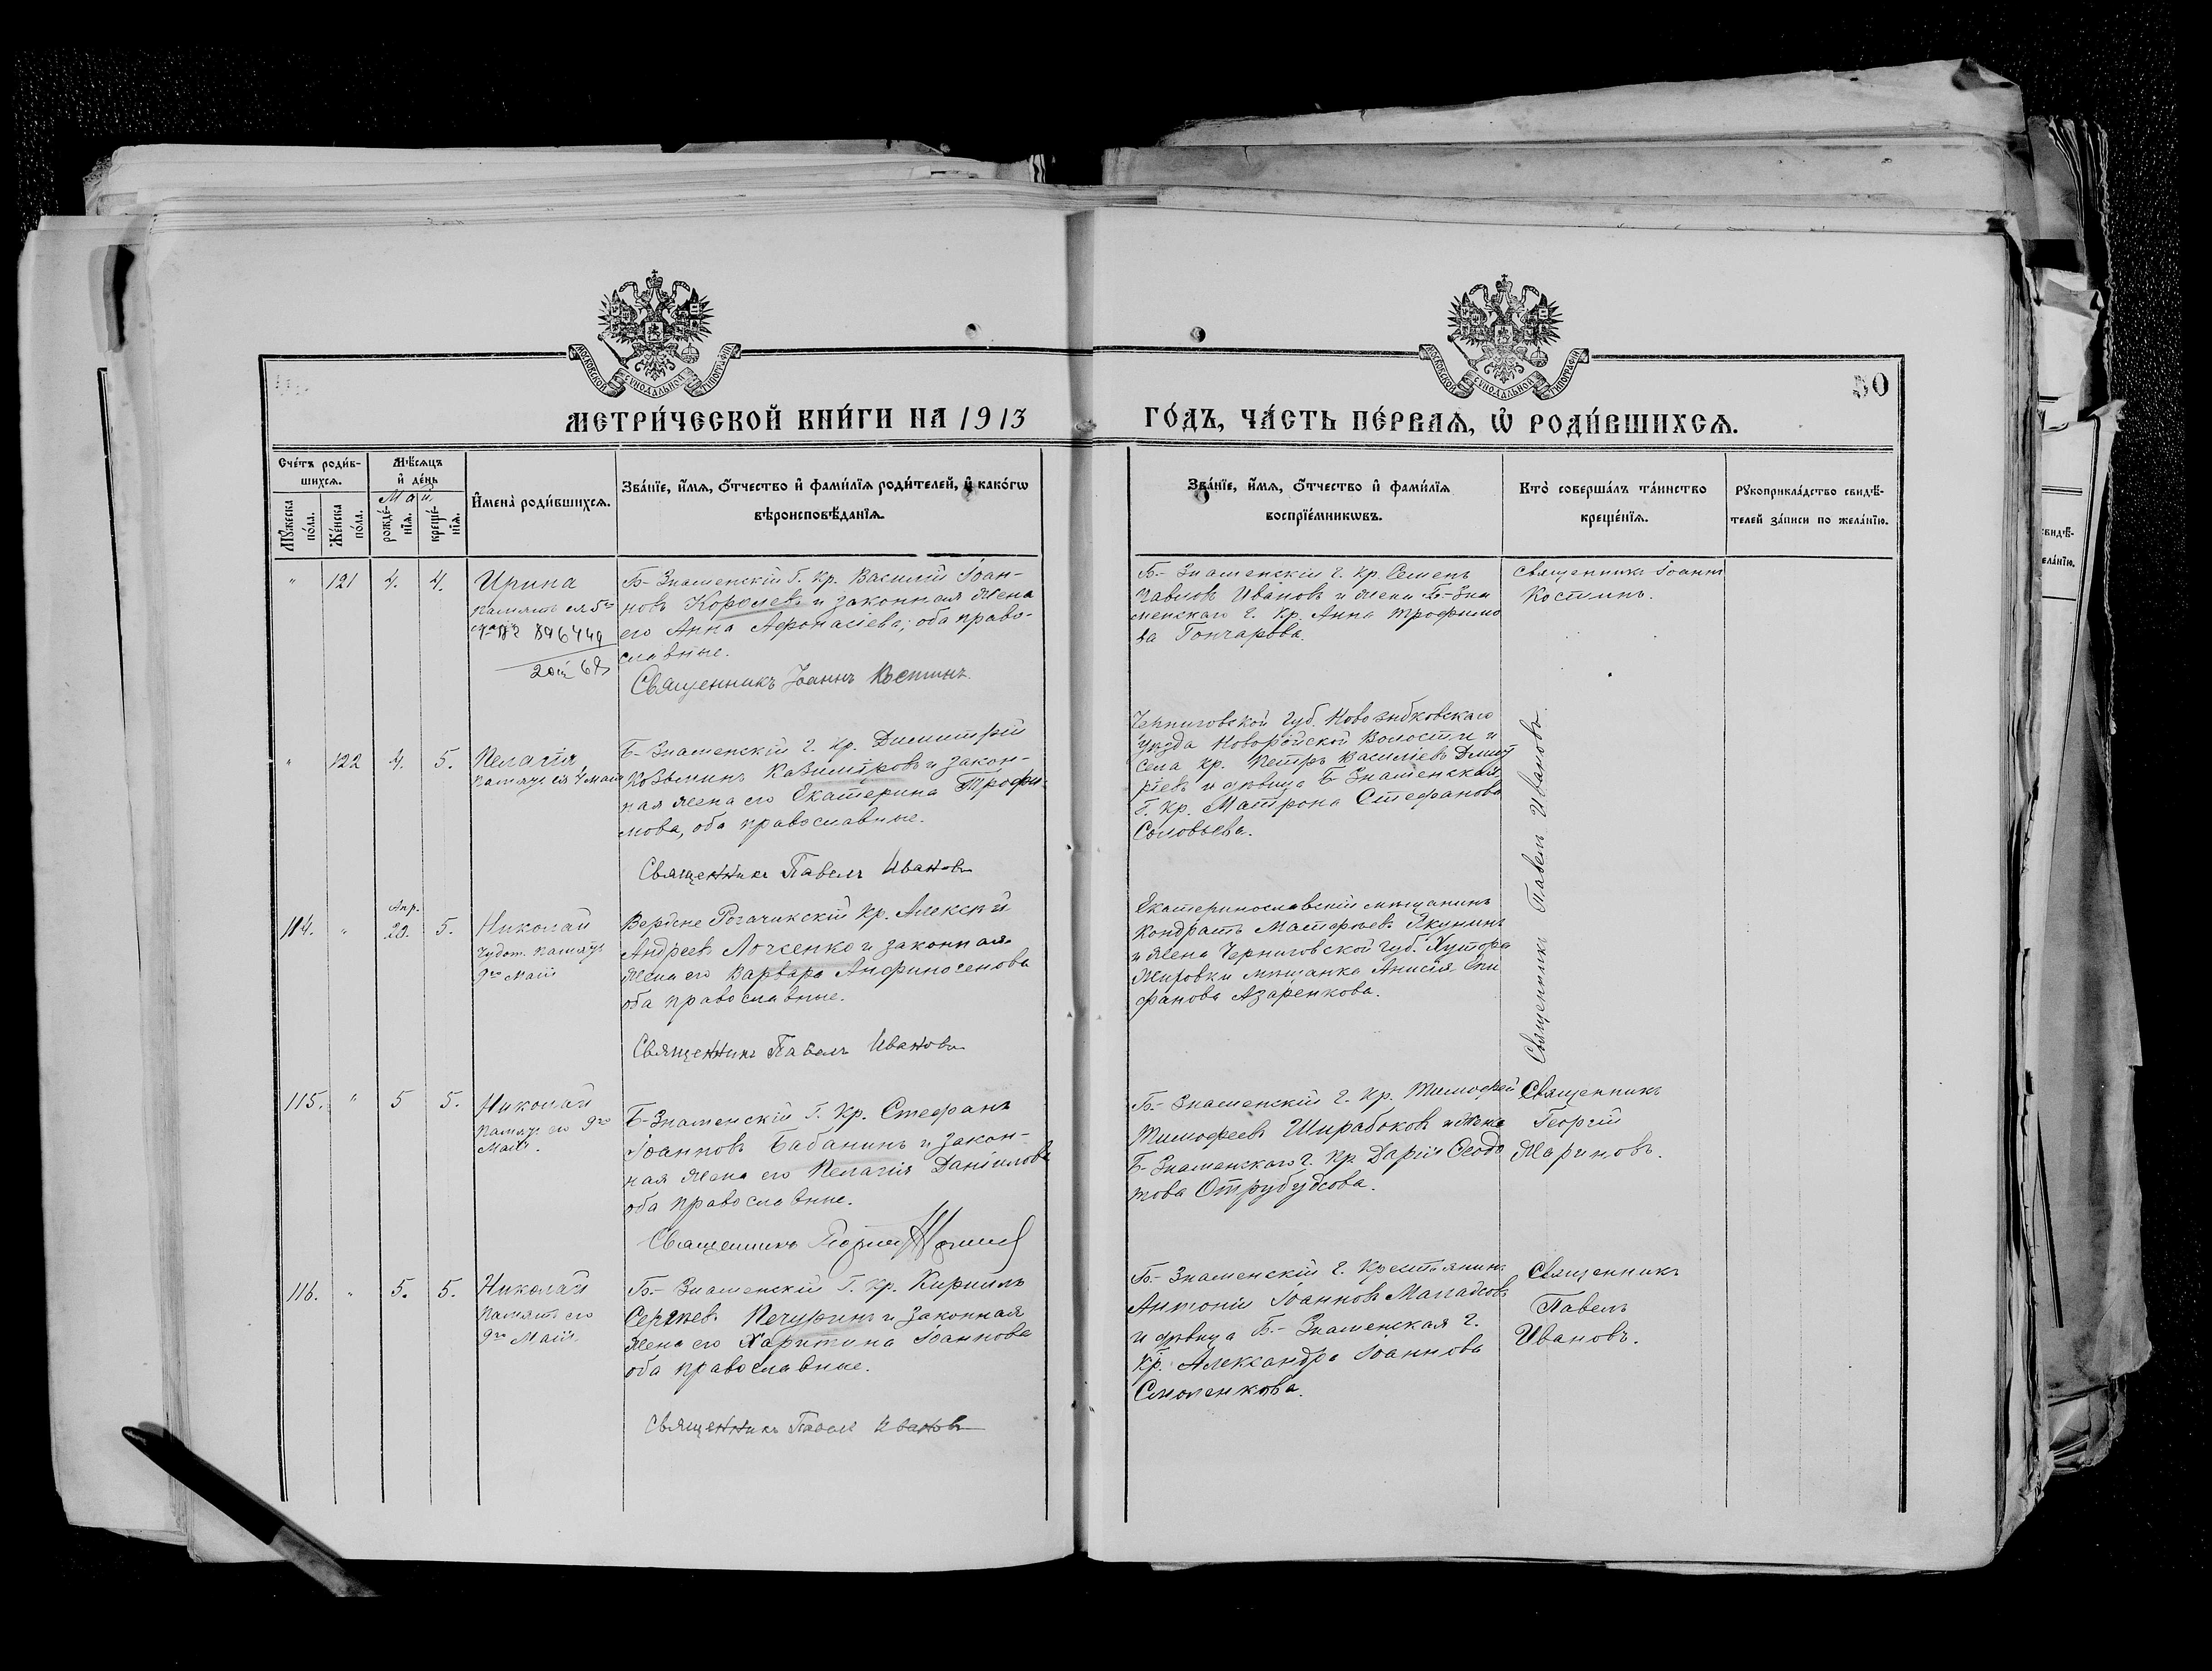 МОСКОВСКОЙ СѴНОДАЛЬНОЙ ТИПОГРАФІИ
МОСКОВСКОЙ СѴНОДАЛЬНОЙ ТИПОГРАФІИ
50
МЕТРИ́ЧЕСКОЙ КНИ́ГИ НА 1913
ГО́ДЪ, ЧА́СТЬ ПЕ́РВАѦ, Ѡ҆ РОДИ́ВШИХСѦ.
Сче́тъ роди́в-
шихсѧ.
Мꙋ́жеска по́ла.
Же́нска по́ла.
Мѣ́сѧцъ
и҆ де́нь
Май
рожде́-нїѧ.
креще́-нїѧ.
И҆мена̀ роди́вшихсѧ.
Зва́нїе, и҆́мѧ, ѻ҆́тчество и҆ фами́лїѧ роди́телей, и҆ како́гѡ
вѣроисповѣ́данїѧ.
Зва́нїе, и҆́мѧ, ѻ҆́тчество и҆ фами́лїѧ
воспрїе́мникѡвъ.
Кто̀ соверша́лъ та́инство
креще́нїѧ.
Рꙋкоприкла́дство свидѣ́-
телей за́писи по жела́нїю.
" 121 4. 4. Ирина
Память ея 5го
896449
Б-Знаменскій Г. Кр. Василій Іоан-
новъ Королевъ и законная жена
его Анна Афонасіева, оба право-
славные.
Священникъ Іоаннъ Костинъ.
Б.- Знаменскій г. Кр. Семенъ
Павловъ Ивановъ и жена Б.-Зна
менскаго г. Кр. Анна Трофимо
ва Гончарова.
Священникъ Іоаннъ
Костинъ.
" 122 4. 5. Пелагія
Память ея 4 мая
Б-Знаменскій г. Кр. Димитрій
Козьминъ Казиміровъ и закон-
ная жена его Екатерина Трофи-
мова, оба православные.
Священникъ Павелъ Ивановъ
Черниговской Губ. Новозыбковскаго
уѣзда Новоройской Волости и
села Кр. Петръ Васильевъ Дмит
ріевъ и дѣвица Б-Знаменская
Г. Кр. Матрона Стефанова
Соловьева.
Священникъ Павелъ Ивановъ.
114. " Апр. 29. 5. Николай
Чудот. Память
9го Мая
Верхне Рогачикскій Кр. Алексѣй
Андреевъ и законная
жена его Варвара
оба православные.
Священникъ Павелъ Ивановъ
Екатеринославскій мѣщанинъ
Кондратъ Матфеевъ Якунинъ
и жена Черниговской губ. Хутора
мѣщанка Анисія Епи
фанова Азаренкова.
115. " 5 5. Николай
Память его 9го
Мая.
Б-Знаменскій Г. Кр. Стефанъ
Іоанновъ Бабанинъ и закон-
ная жена его Пелагія Даніилова
оба православные.
Священникъ Георгій
Б.- Знаменскій г. Кр. Тимофей
Тимофеевъ Ширабоковъ и жена
Б-Знаменскаго г. Кр. Дарія Ѳеодо
това
Священникъ
Георгій
Мариновъ.
116. " 5. 5. Николай
Память его
9го Мая.
Б.- Знаменскій Г. Кр. Кириллъ
Сергѣевъ и законная
жена его Харитина Іоаннова
оба православные.
Священникъ Павелъ Ивановъ
Б.- Знаменскій г. Крестьянинъ
Антоній Іоанновъ
и дѣвица Б.- Знаменская г.
Кр. Александра Іоаннова
Смоленкова.
Священникъ
Павелъ
Ивановъ.